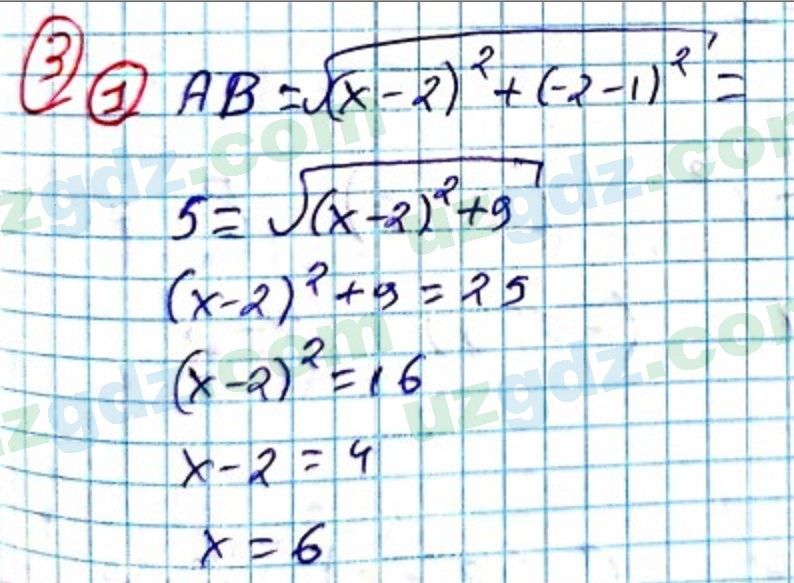 3 1 AB = √(x-2)² + (-2-1)² =
5 = √(x-2)² + 9
(x-2)² + 9 = 25
(x-2)² = 16
x - 2 = 4
x = 6
uzgdz.com
uzgdz.com
uzgdz.com
uzgdz.com